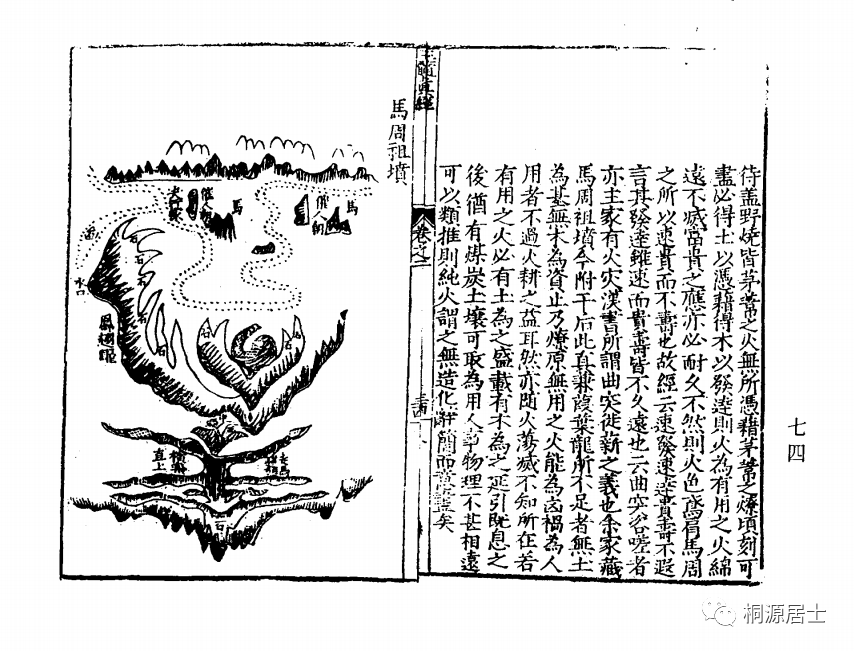 待蓋野燒皆茅葦之火無所憑藉茅葦之燎頃刻可
盡必得土以憑藉得木以發達則火為有用之火綿
遠不滅富貴之應亦必耐久不然則火色鳶肩馬周
之所以速貴而不壽也故經云速發速達貴壽不遐
言其發達雖速而貴壽皆不久遠也云曲突谷嗟者
亦主家有火灾漢書所謂曲突徙薪之義也余家藏
馬周祖墳今附于后此真蒹葭葉龍所不足者無土
為基無木為資止乃燎原無用之火能為凶禍為人
用者不過火耕之益耳然亦隨火蕩滅不知所在若
有用之火必有土為之盛載有木為之延引既息之
後猶有煤炭土壤可取為用人事物理不甚相遠
可以類推則純火謂之無造化辭簡而意盡矣
七四
玉髓真經
卷之二
馬周祖墳
催人朝
馬
催人朝
馬
水口
石
石
石
石
石
石
直上
石
桐源居士